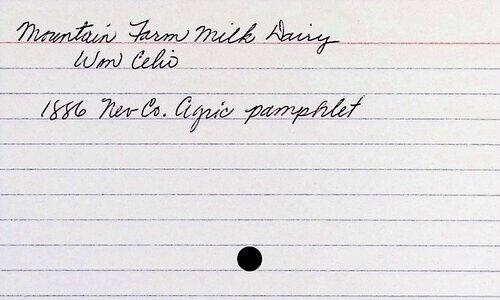 Mountain Farm Milk Dairy
Wm Celio
1886 Nev Co. Agric pamphlet